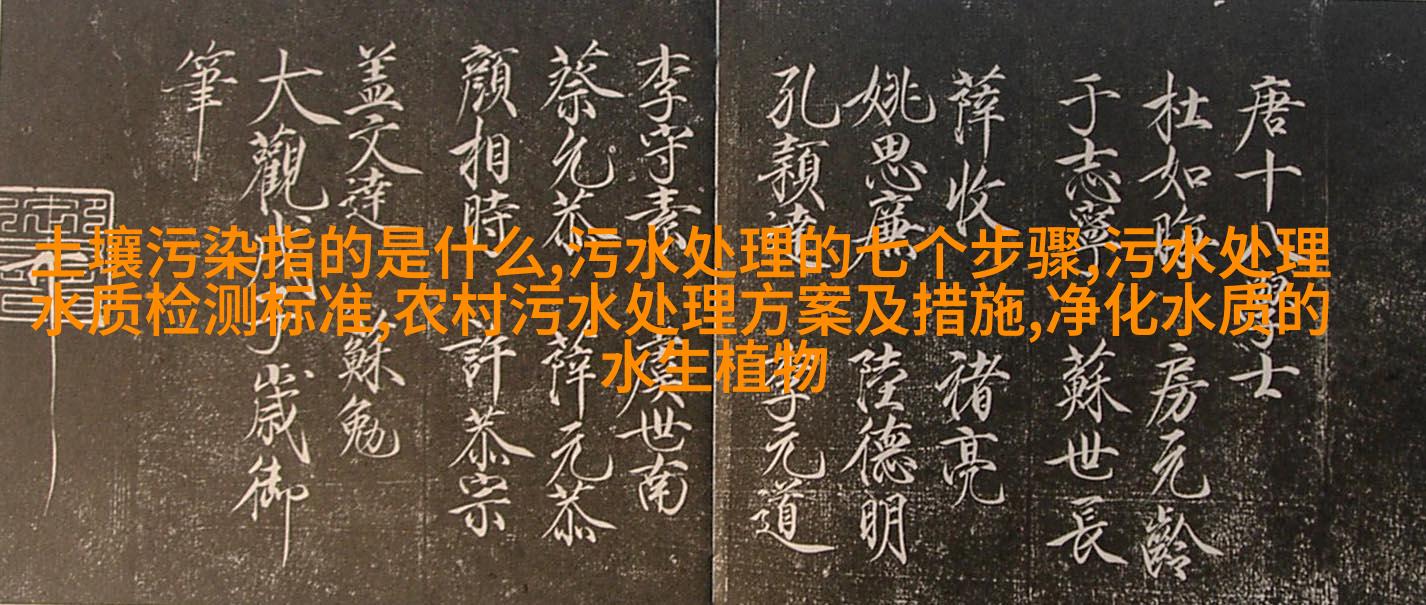 唐十八學士
杜如晦 房元齡
于志寧 蘇世長
薛收 褚亮
姚思廉 陸德明
孔頴達 李元道
李守素 虞世南
蔡允恭 薛元恭
顏相時 許恭宗
盖文達 蘇勉
大觀戊子歲御
筆
土壤污染指的是什么,污水处理的七个步骤,污水处理
水质检测标准,农村污水处理方案及措施,净化水质的
水生植物